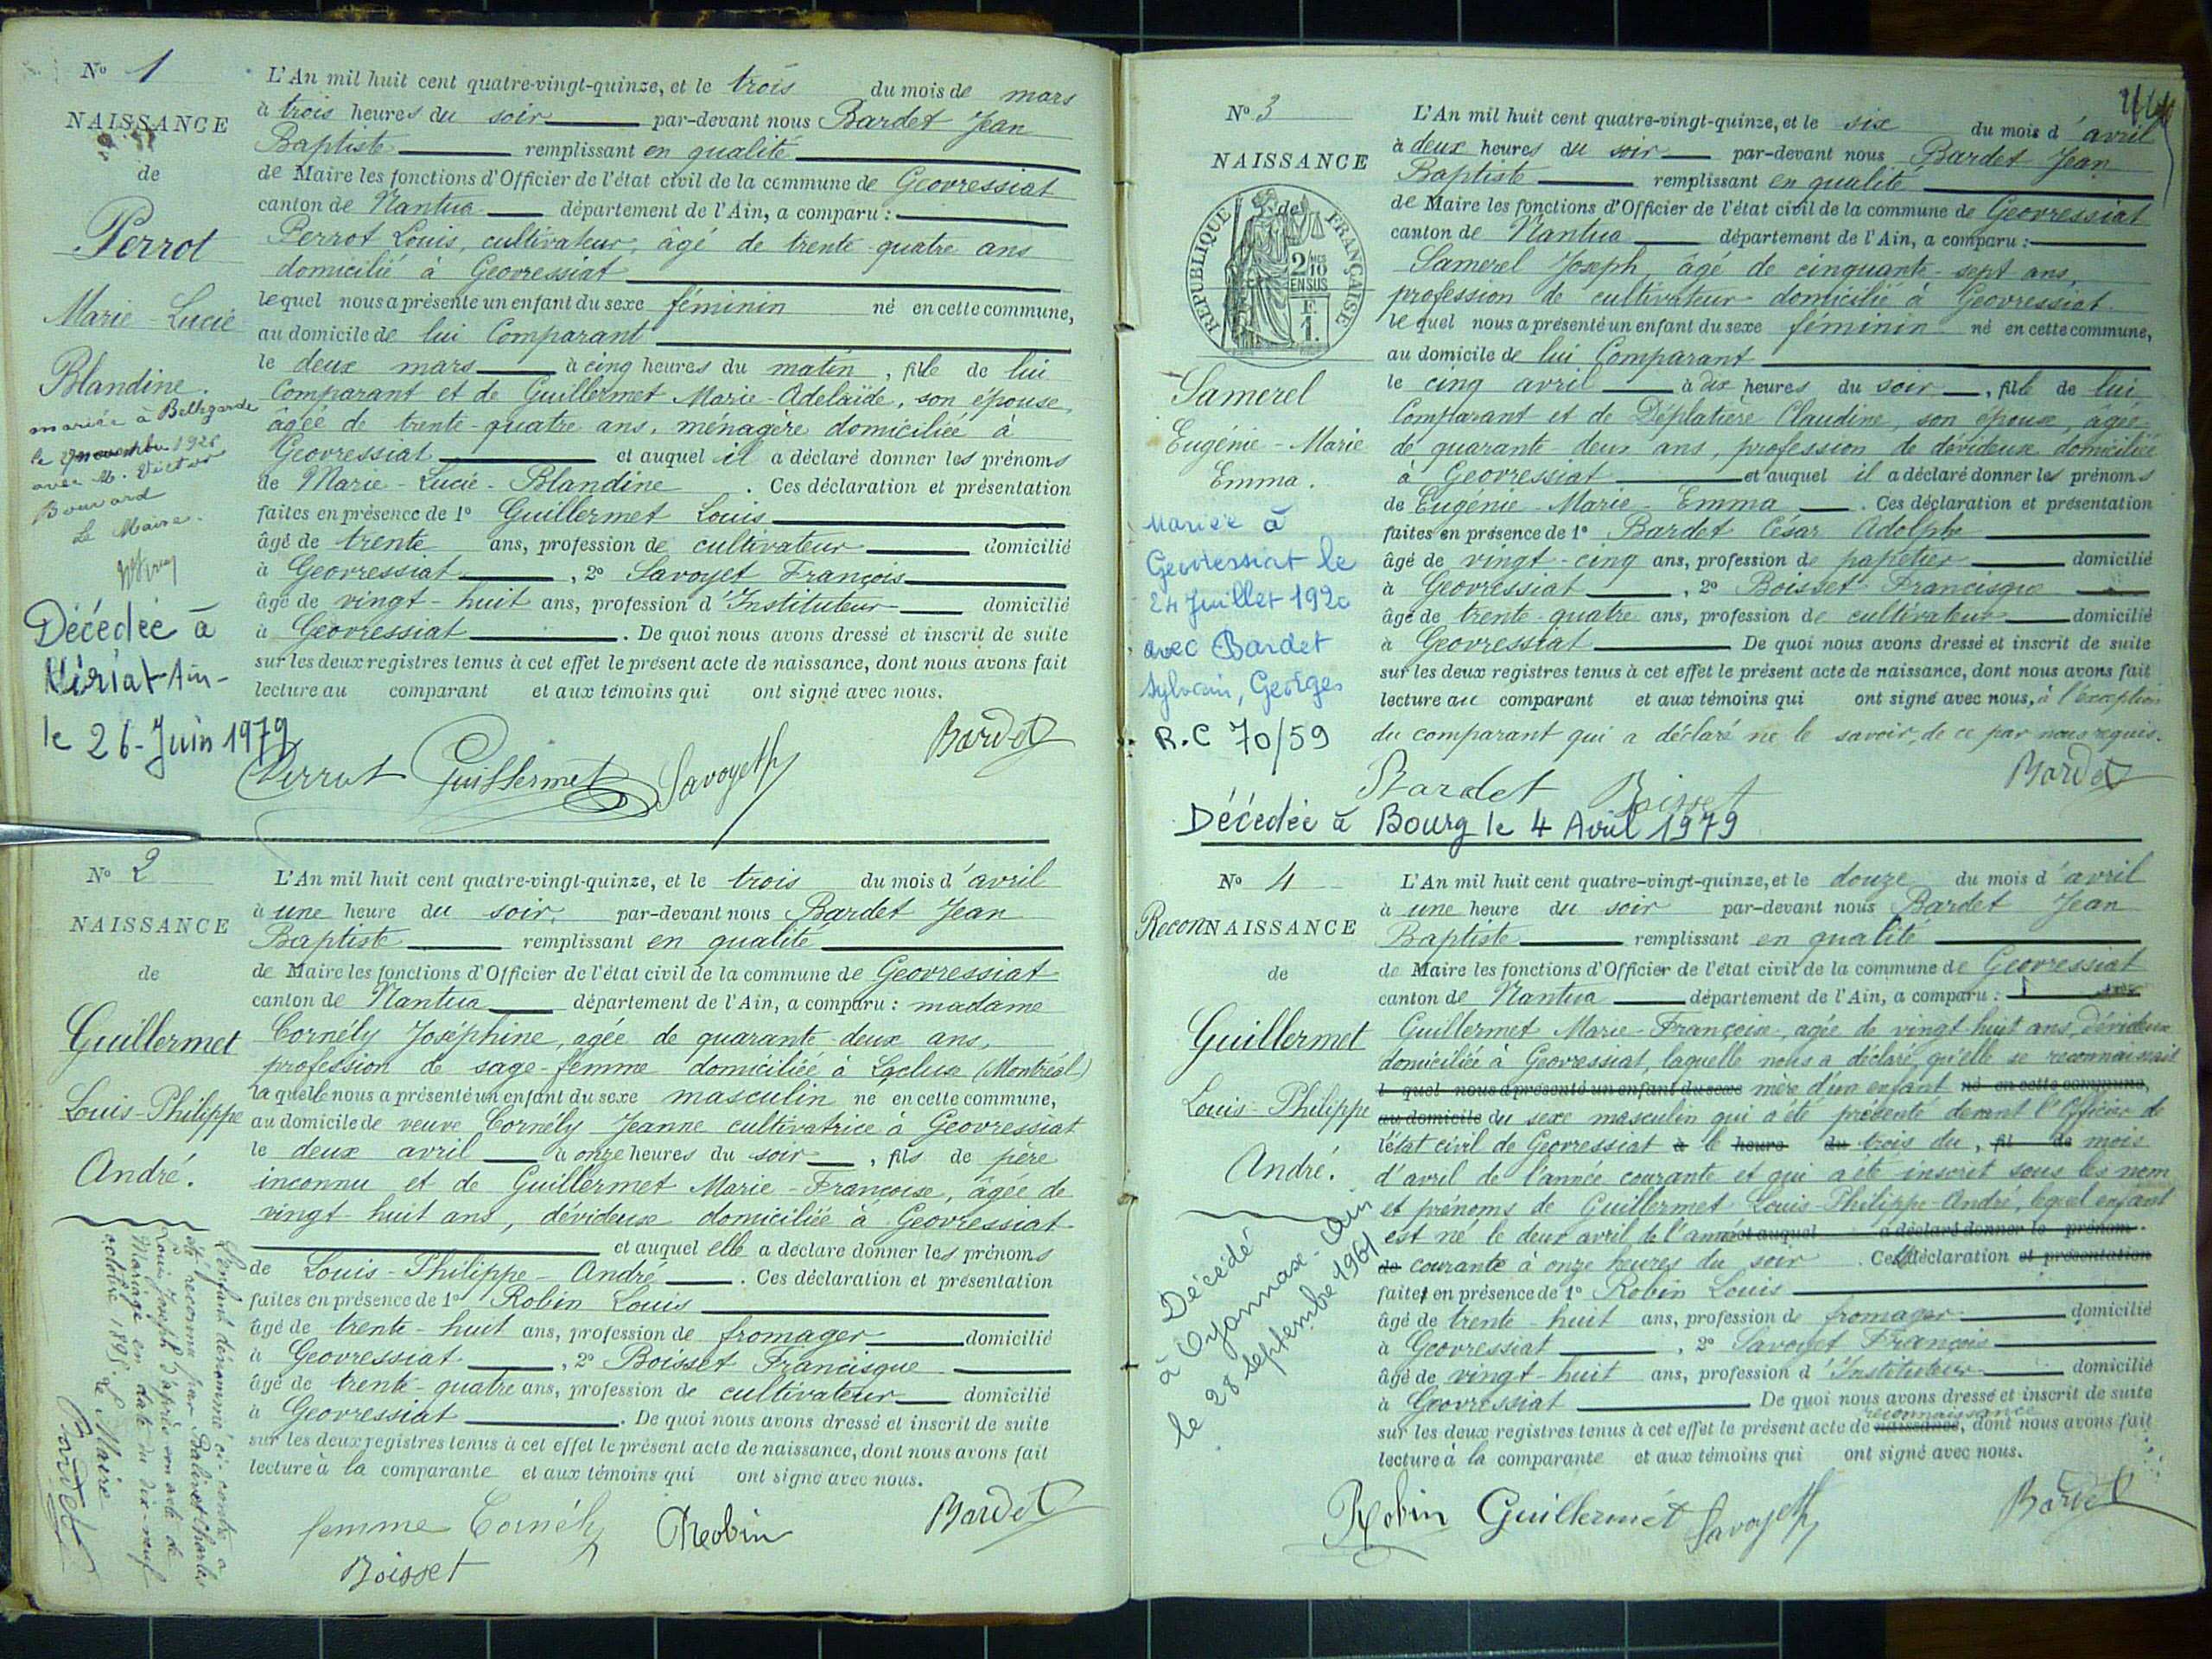 No 1
NAISSANCE
de
Perrot
Marie-Lucie
Blandine.
mariée à Bellegarde
le novembre
avec M. Victor
Bouvard
Le Maire.
Décédée à
Vériat-Ain-
le 26-Juin 1979
L'An mil huit cent quatre-vingt-quinze, et le trois du mois de mars
à trois heures du soir par-devant nous Bardet Jean
Baptiste remplissant en qualité
de Maire les fonctions d'Officier de l'état civil de la commune de Geovressiat
canton de Nantua département de l'Ain, a comparu :
Perrot Louis, cultivateur, âgé de trente-quatre ans
domicilié à Geovressiat
lequel nous a présenté un enfant du sexe féminin né en cette commune,
au domicile de lui Comparant
le deux mars à cinq heures du matin, fille de lui
Comparant et de Guillermet Marie-Adelaïde, son épouse,
âgée de trente-quatre ans, ménagère domiciliée à
Geovressiat et auquel il a déclaré donner les prénoms
de Marie-Lucie-Blandine. Ces déclaration et présentation
faites en présence de 1º Guillermet Louis
âgé de trente ans, profession de cultivateur domicilié
à Geovressiat, 2º Savoyet François
âgé de vingt-huit ans, profession d'Instituteur domicilié
à Geovressiat. De quoi nous avons dressé et inscrit de suite
sur les deux registres tenus à cet effet le présent acte de naissance, dont nous avons fait
lecture au comparant et aux témoins qui ont signé avec nous.
Bardet
Perrot Guillermet Savoyet
No 2
NAISSANCE
de
Guillermet
Louis-Philippe
André.
L'enfant dénommé ci-contre a
été reconnu par Balivet Charles
Louis Joseph d'après son acte de
Mariage en date du dix-neuf
octobre 1895. Le Maire
Bardet
L'An mil huit cent quatre-vingt-quinze, et le trois du mois d'avril
à une heure du soir, par-devant nous Bardet Jean
Baptiste remplissant en qualité
de Maire les fonctions d'Officier de l'état civil de la commune de Geovressiat
canton de Nantua département de l'Ain, a comparu : madame
Cornély Joséphine, agée de quarante-deux ans,
profession de sage-femme domiciliée à Lacluse (Montréal)
laquelle nous a présenté un enfant du sexe masculin né en cette commune,
au domicile de veuve Cornély Jeanne cultivatrice à Geovressiat
le deux avril à onze heures du soir, fils de père
inconnu et de Guillermet Marie-Françoise, âgée de
vingt-huit ans, dévideuse domiciliée à Geovressiat
et auquel elle a déclaré donner les prénoms
de Louis-Philippe-André. Ces déclaration et présentation
faites en présence de 1º Robin Louis
âgé de trente-huit ans, profession de fromager domicilié
à Geovressiat, 2º Boisset Francisque
âgé de trente-quatre ans, profession de cultivateur domicilié
à Geovressiat. De quoi nous avons dressé et inscrit de suite
sur les deux registres tenus à cet effet le présent acte de naissance, dont nous avons fait
lecture à la comparante et aux témoins qui ont signé avec nous.
femme Cornély Robin Bardet
Boisset
No 3
NAISSANCE
de
REPUBLIQUE FRANÇAISE
2/10 EN SUS
F. 1.
Samerel
Eugénie-Marie
Emma.
Mariée à
Geovressiat le
24 Juillet 1920
avec Bardet
Sylvain, Georges
R.C 70/59
L'An mil huit cent quatre-vingt-quinze, et le six du mois d'avril
à deux heures du soir par-devant nous Bardet Jean
Baptiste remplissant en qualité
de Maire les fonctions d'Officier de l'état civil de la commune de Geovressiat
canton de Nantua département de l'Ain, a comparu :
Samerel Joseph, âgé de cinquante-sept ans,
profession de cultivateur domicilié à Geovressiat
lequel nous a présenté un enfant du sexe féminin né en cette commune,
au domicile de lui Comparant
le cinq avril à dix heures du soir, fille de lui
Comparant et de Déplatière Claudine, son épouse, âgée
de quarante deux ans, profession de dévideuse domiciliée
à Geovressiat et auquel il a déclaré donner les prénoms
de Eugénie-Marie-Emma. Ces déclaration et présentation
faites en présence de 1º Bardet César Adolphe
âgé de vingt-cinq ans, profession de papetier domicilié
à Geovressiat, 2º Boisset Francisque
âgé de trente quatre ans, profession de cultivateur domicilié
à Geovressiat De quoi nous avons dressé et inscrit de suite
sur les deux registres tenus à cet effet le présent acte de naissance, dont nous avons fait
lecture au comparant et aux témoins qui ont signé avec nous, à l'exception
du comparant qui a déclaré ne le savoir, de ce par nous requis.
Bardet Boisset Bardet
Décédée à Bourg le 4 Avril 1979
No 4
ReconNAISSANCE
de
Guillermet
Louis-Philippe
André.
Décédé
à Oyonnax-Ain
le 28 septembre 1961
L'An mil huit cent quatre-vingt-quinze, et le douze du mois d'avril
à une heure du soir par-devant nous Bardet Jean
Baptiste remplissant en qualité
de Maire les fonctions d'Officier de l'état civil de la commune de Geovressiat
canton de Nantua département de l'Ain, a comparu :
Guillermet Marie-Françoise, agée de vingt huit ans, dévideuse
domiciliée à Geovressiat, laquelle nous a déclaré, qu'elle se reconnaissait
l quel nous a présenté un enfant du sexe mère d'un enfant né en cette commune,
au domicile du sexe masculin qui a été présenté devant l'Officier de
l'état civil de Geovressiat à le heure du trois du, fil de mois
d'avril de l'année courante et qui a été inscrit sous les nom
et prénoms de Guillermet Louis-Philippe-André, lequel enfant
est né le deux avril de l'année et auquel a déclaré donner le prénom.
de courante à onze heures du soir. Ces déclaration et présentation
faites en présence de 1º Robin Louis
âgé de trente-huit ans, profession de fromager domicilié
à Geovressiat, 2º Savoyet François
âgé de vingt-huit ans, profession d'Instituteur domicilié
à Geovressiat De quoi nous avons dressé et inscrit de suite
reconnaissance
sur les deux registres tenus à cet effet le présent acte de naissance, dont nous avons fait
lecture à la comparante et aux témoins qui ont signé avec nous.
Robin Guillermet Savoyet Bardet